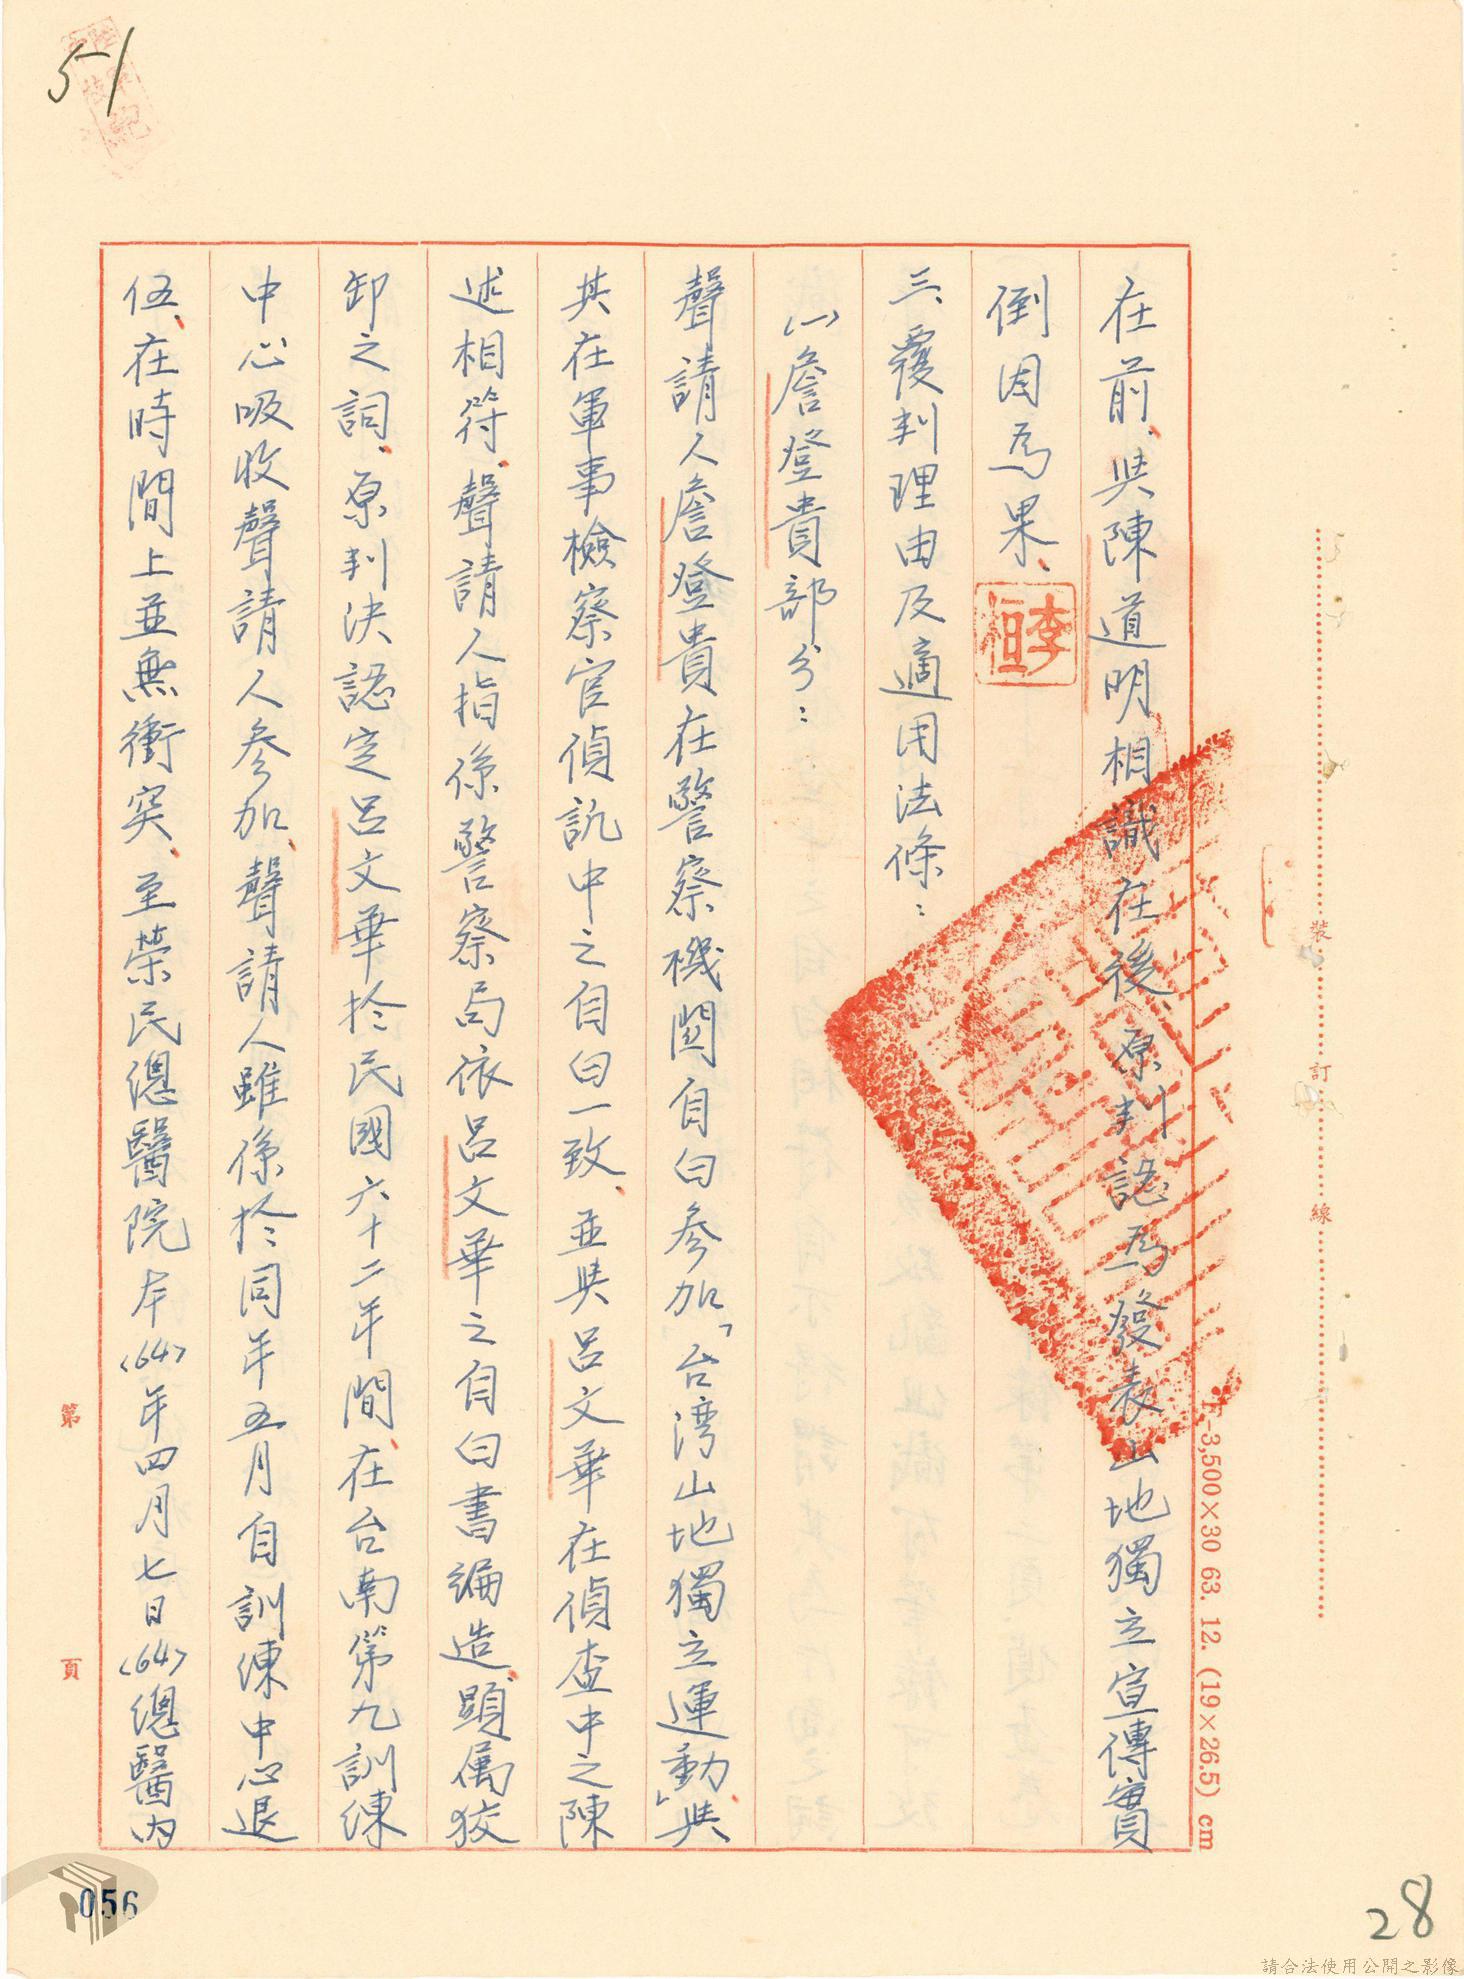 51
在前、與陳道明相識在後、原判認為發表山地獨立宣傳實
倒因為果、
李桓
三、覆判理由及適用法條：
㈠詹登貴部分：
聲請人詹登貴在警察機關自白參加「台湾山地獨立運動」與
其在軍事檢察官偵訊中之自白一致、並與呂文華在偵查中之陳
述相符、聲請人指係警察局依呂文華之自白書編造、顯属狡
卸之詞、原判決認定呂文華於民國六十二年間、在台南第九訓練
中心吸收聲請人參加、聲請人雖係於同年五月自訓練中心退
伍、在時間上並無衝突、至榮民總醫院本<64>年四月七日<64>總醫內
裝 訂 線
T-3,500×30 63. 12. (19×26.5) cm
第 頁
056
28
請合法使用公開之影像